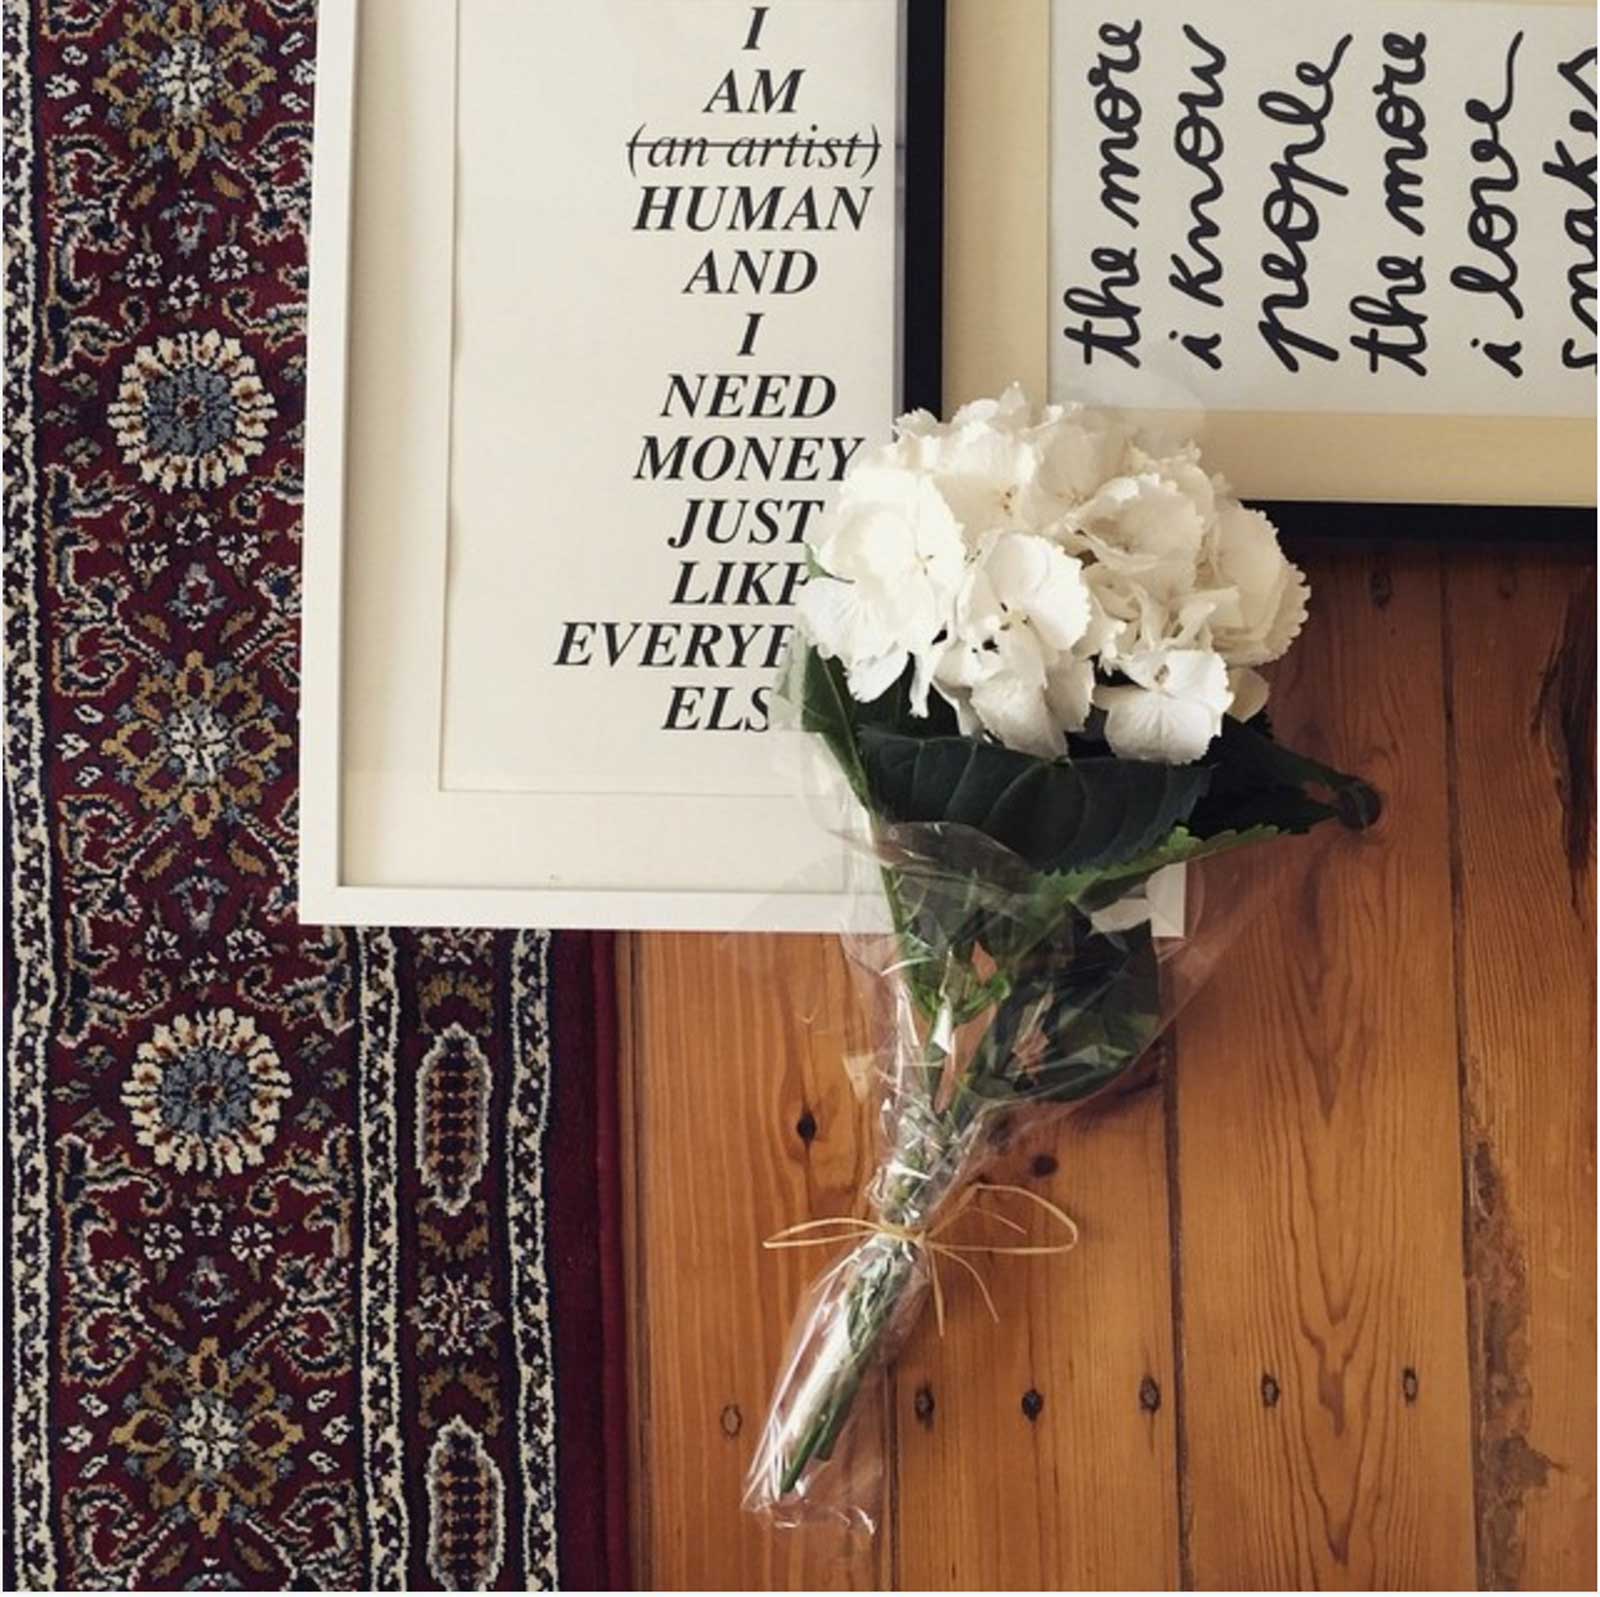 I
AM
(an artist)
HUMAN
AND
I
NEED
MONEY
JUST
LIKE
ELS
the more
i know
people
the more
i love
snakes